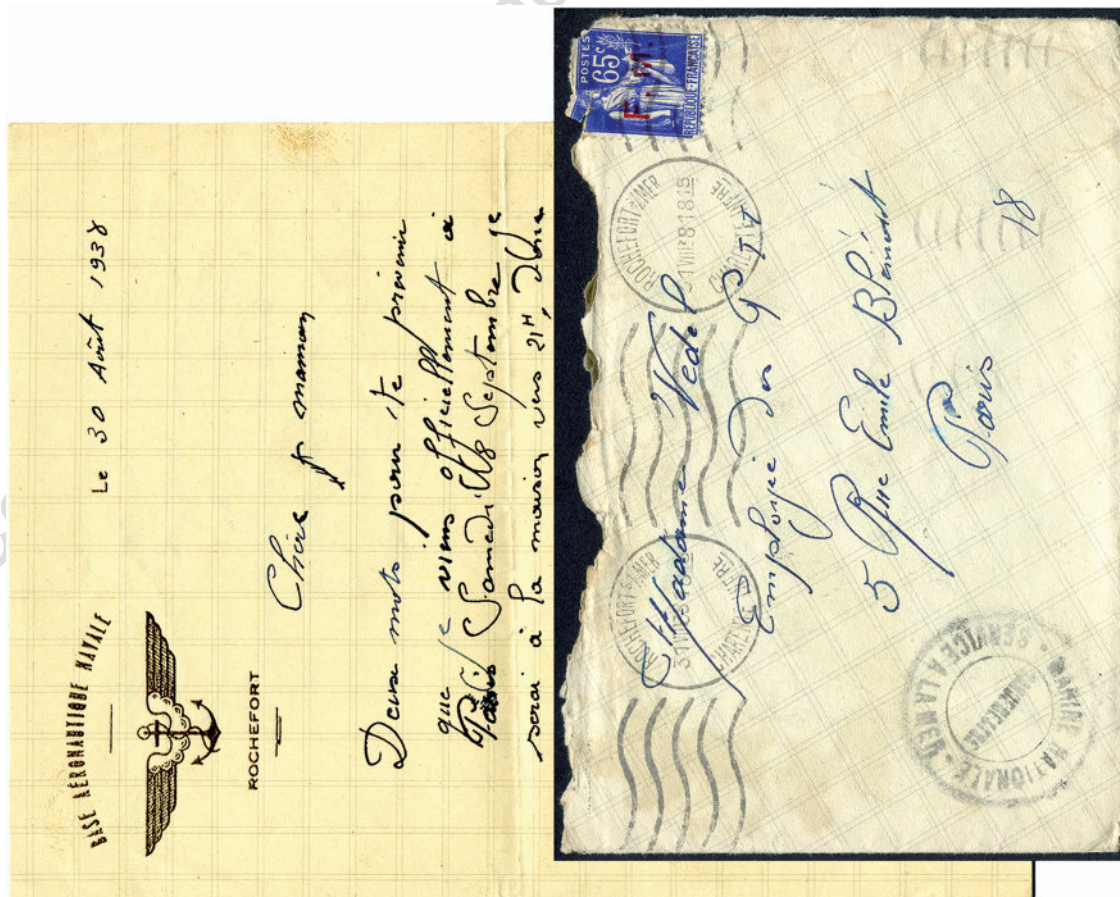 BASE AÉRONAUTIQUE NAVALE
ROCHEFORT
Le 30 Août 1938
Chère maman
Deux mots pour te prévenir
que je viens officiellement à
Paris Samedi Septembre je
serai à la maison vers 21H,
POSTES
65c
F. M.
REPUBLIQUE-FRANÇAISE
ROCHEFORT S/MER
CHARENTE INFRE
ROCHEFORT S/MER
CHARENTE INFRE
Madame Vedel
Employée des PTT
5 Rue Emile Blémont
Paris 18
MARINE NATIONALE
SERVICE A LA MER